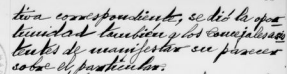 tiva correspondiente, se dió la opor-
tunidad tambien a los concejales asis-
tentes de manifestar su parecer
sobre el particular.